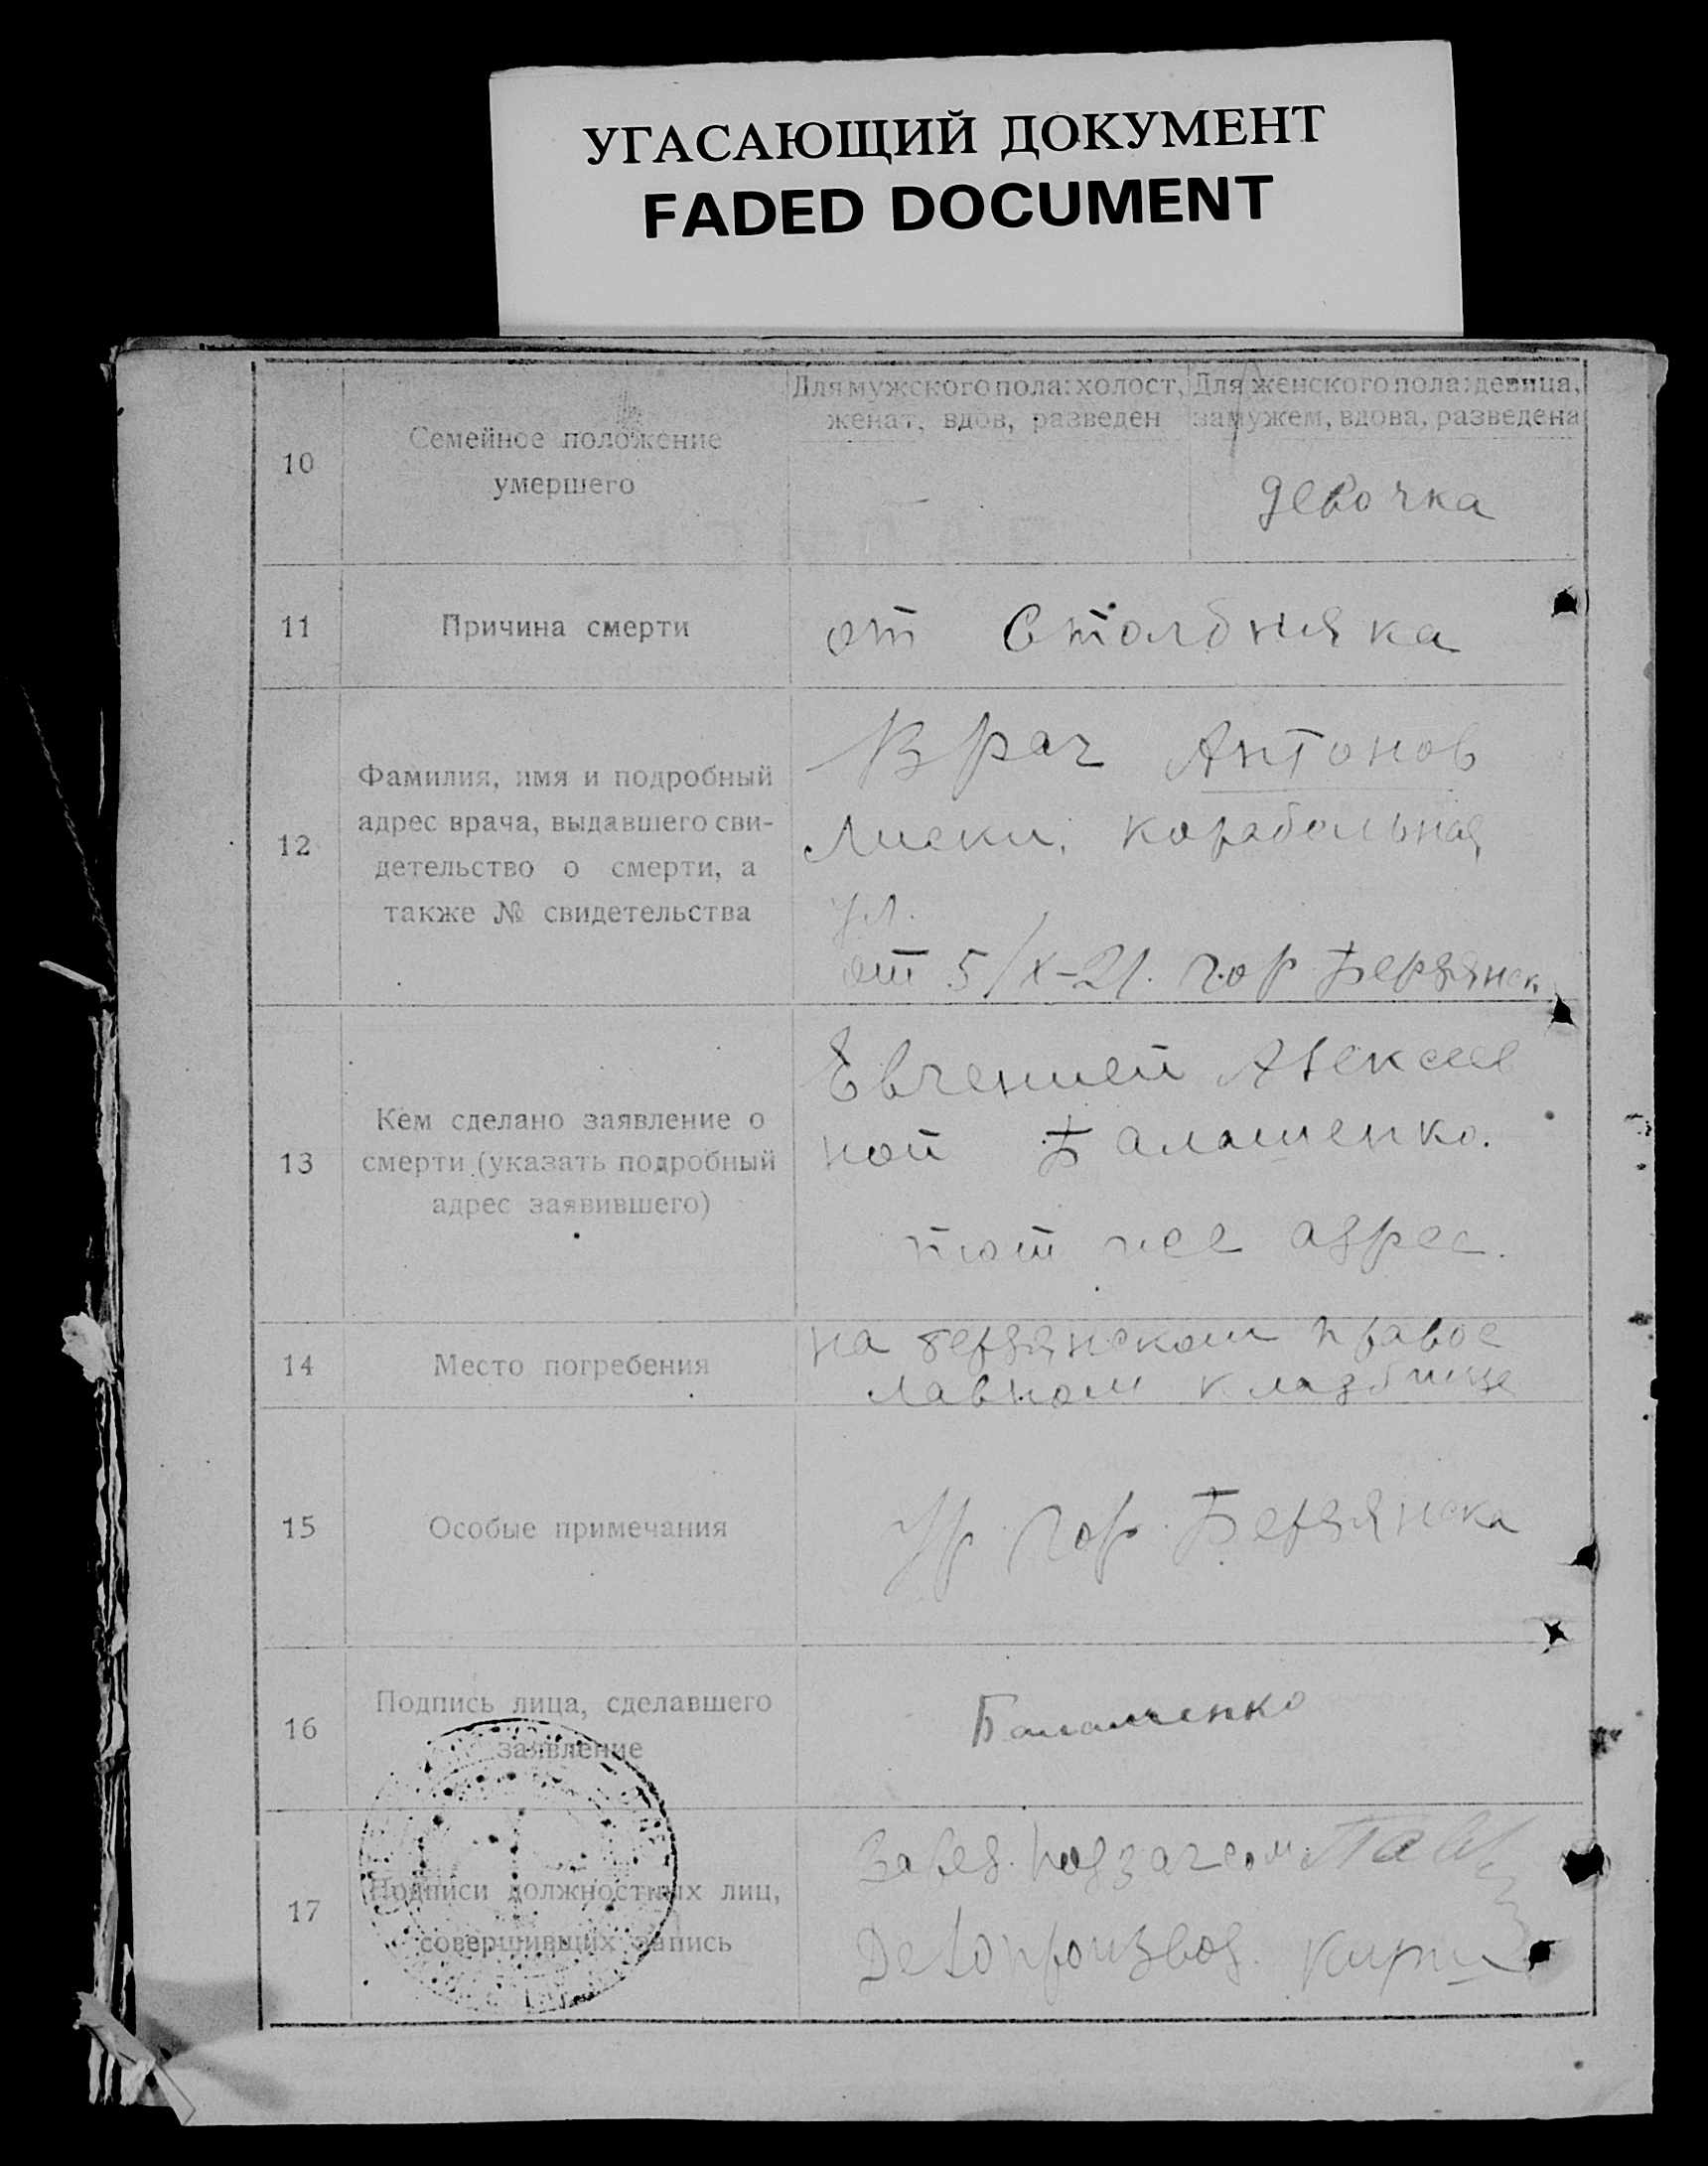 УГАСАЮЩИЙ ДОКУМЕНТ
FADED DOCUMENT
10
Семейное положение
умершего
Для мужского пола: холост,
женат, вдов, разведен
—
Для женского пола: девица,
замужем, вдова, разведена
девочка
11
Причина смерти
от Столбняка
12
Фамилия, имя и подробный
адрес врача, выдавшего сви-
детельство о смерти, а
также № свидетельства
Врач Антонов
Лиски, корабельная
ул.
от 5/X-21. гор Бердянск
13
Кем сделано заявление о
смерти (указать подробный
адрес заявившего)
Евгенией Алексее
ной Балашенко.
тот же адрес.
14
Место погребения
на бердянском правос
лавном кладбище
15
Особые примечания
Ур. гор. Бердянска
16
Подпись лица, сделавшего
заявление
Балашенко
17
Подписи должностных лиц,
совершивших запись
Завед. подзагсом
Делопроизвод.